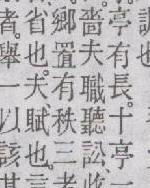 亭有長十亭一
嗇夫職聽訟收
鄉置有秩三老
省也夫賦也言
者舉一以該其